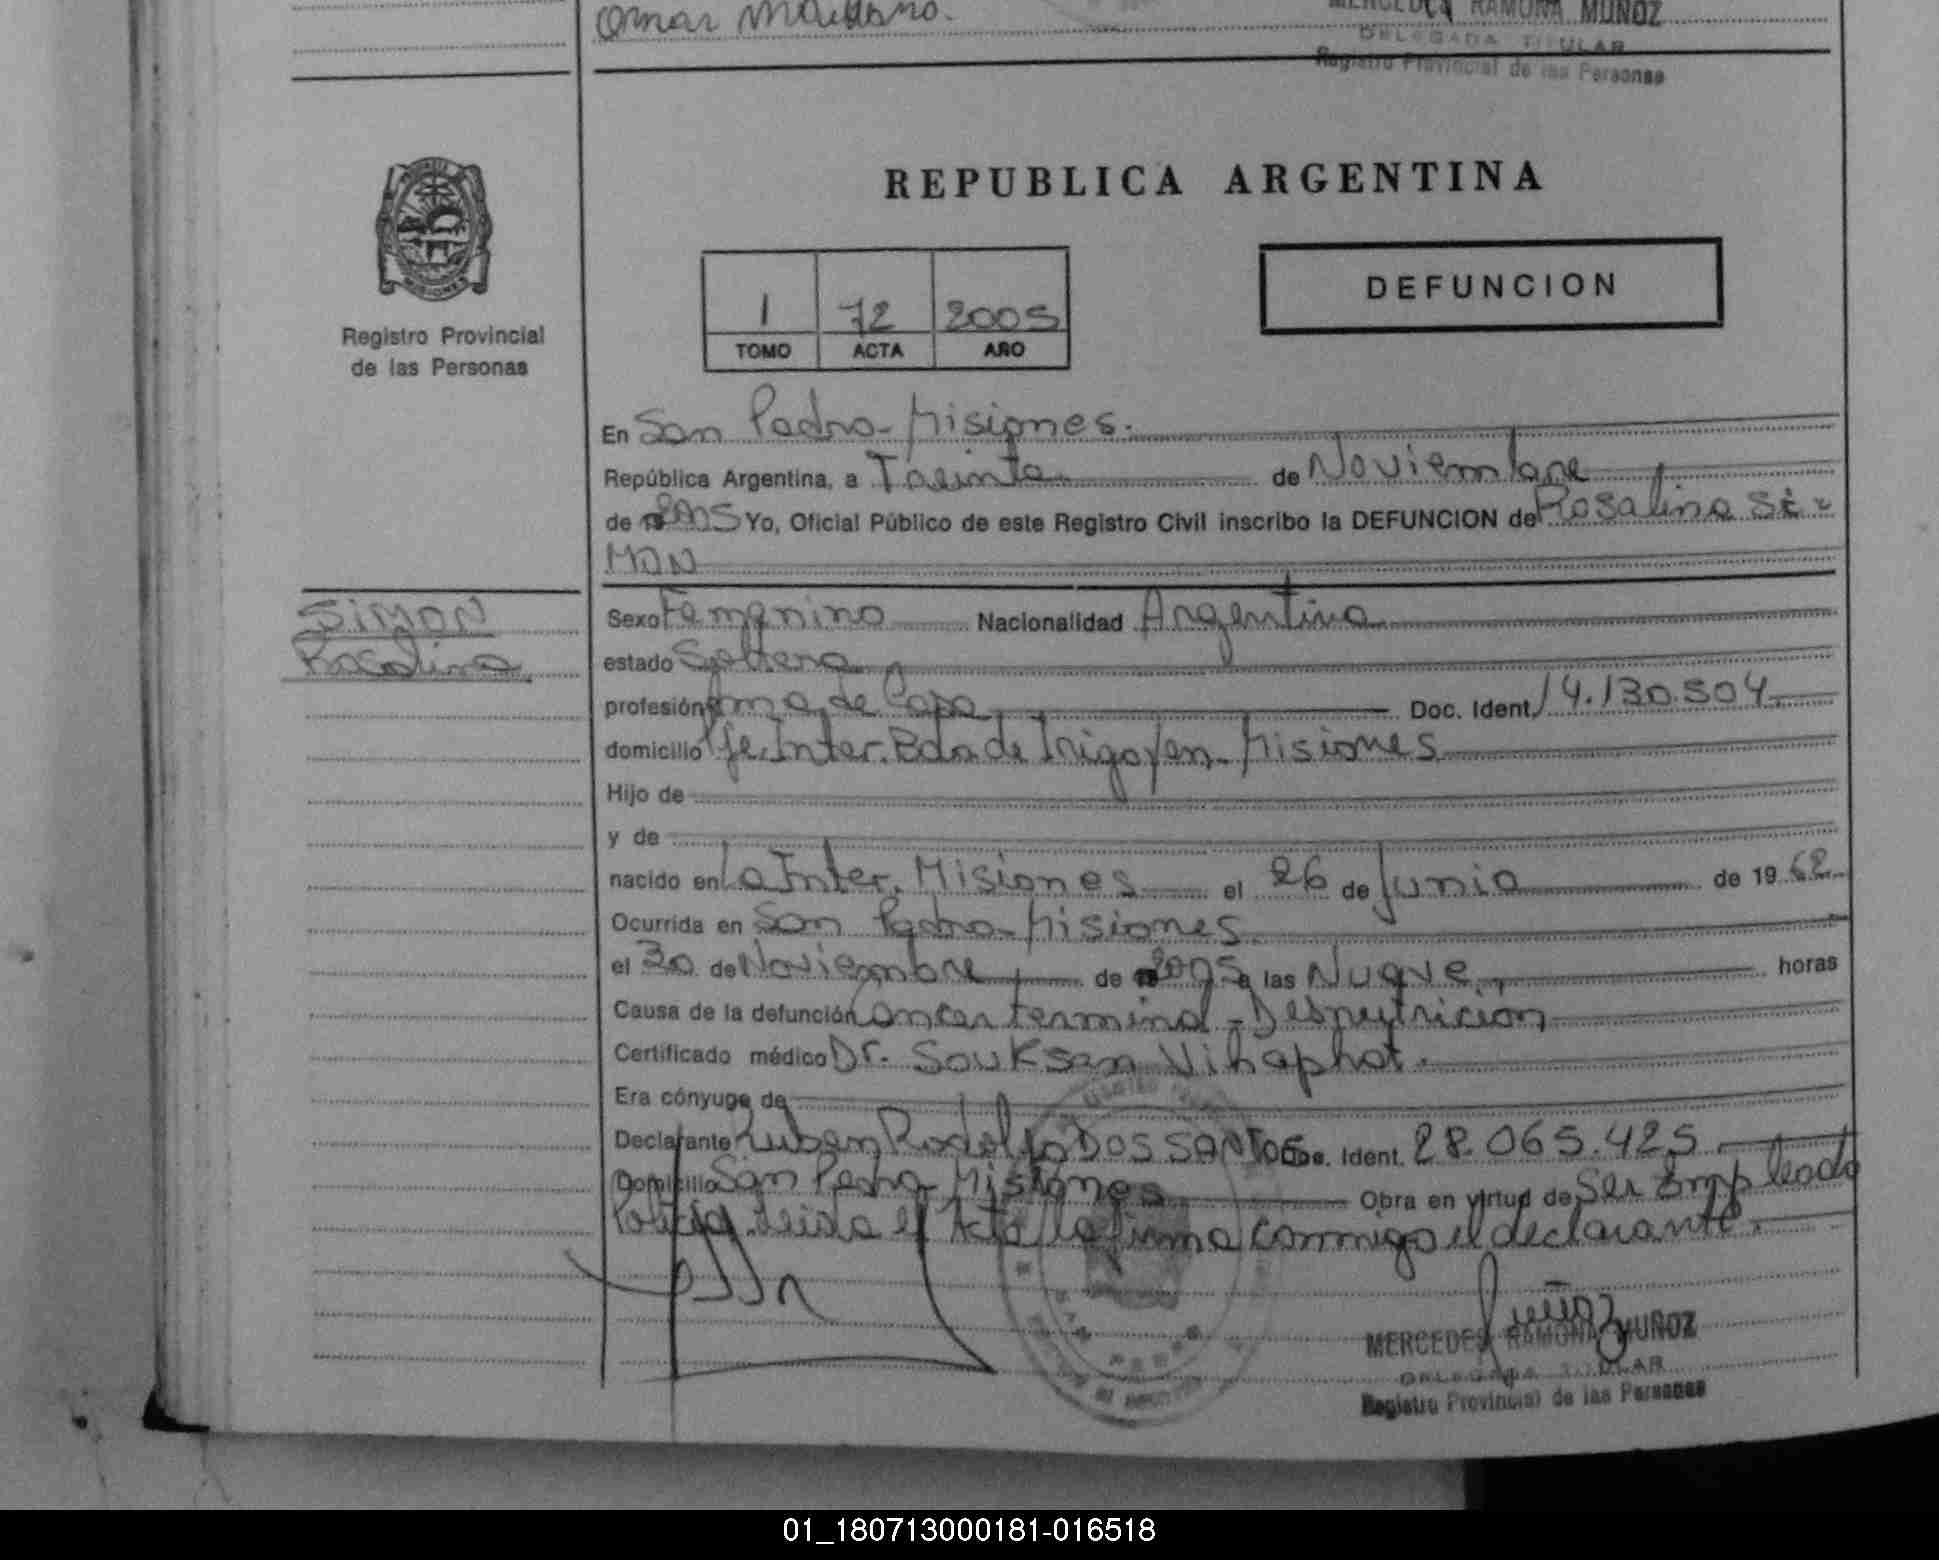 Omar
MERCEDES RAMONA MUÑOZ
DELEGADA TITULAR
Registro Provincial de las Personas
MISIONES
Registro Provincial
de las Personas
REPUBLICA ARGENTINA
DEFUNCION
1 72 2005
TOMO ACTA AÑO
En San Pedro - Misiones.
República Argentina, a Treinta de Noviembre
de 2005 Yo, Oficial Público de este Registro Civil inscribo la DEFUNCION de Rosalina SI-
MON
SIMON
Rosalina
Sexo Femenino Nacionalidad Argentina
estado Soltera
profesión Ama de Casa Doc. Ident. 14.130.504
domicilio Inter. Bdo. de Irigoyen - Misiones
Hijo de
y de
nacido en La Inter. Misiones el 26 de Junio de 1962
Ocurrida en San Pedro - Misiones
el 30 de Noviembre de 2005 a las Nueve horas
Causa de la defunción Cancer terminal - Desnutrición
Certificado médico Dr. Souksan Vihaphat.
Era cónyuge de
Declarante Ruben Rodolfo DOS SANTOS Doc. Ident. 28.065.425
Domicilio San Pedro Misiones Obra en virtud de Ser Empleado
Policia. Leida el Acta la firma conmigo el declarante.
Muñoz
MERCEDES RAMONA MUÑOZ
DELEGADA TITULAR
Registro Provincial de las Personas
01_180713000181-016518